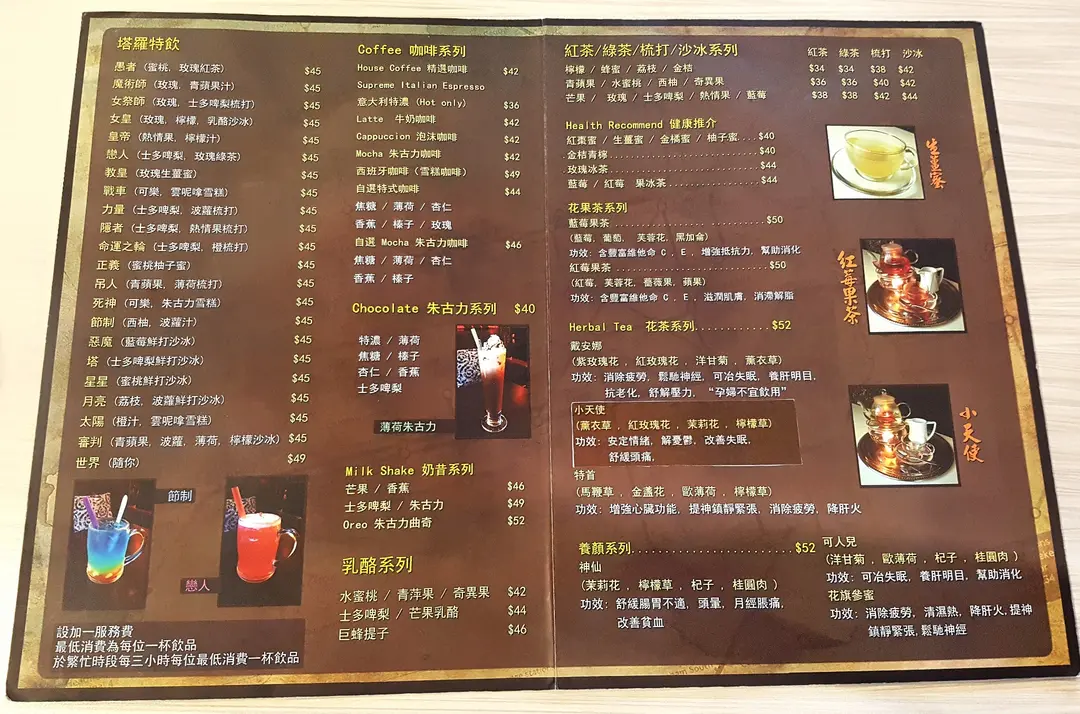 塔羅特飲
愚者 (蜜桃, 玫瑰紅茶) $45
魔術師 (玫瑰, 青蘋果汁) $45
女祭師 (玫瑰, 士多啤梨梳打) $45
女皇 (玫瑰, 檸檬, 乳酪沙冰) $45
皇帝 (熱情果, 檸檬汁) $45
戀人 (士多啤梨, 玫瑰綠茶) $45
教皇 (玫瑰生薑蜜) $45
戰車 (可樂, 雲呢嗱雪糕) $45
力量 (士多啤梨, 波蘿梳打) $45
隱者 (士多啤梨, 熱情果梳打) $45
命運之輪 (士多啤梨, 橙梳打) $45
正義 (蜜桃柚子蜜) $45
吊人 (青蘋果, 薄荷梳打) $45
死神 (可樂, 朱古力雪糕) $45
節制 (西柚, 波蘿汁) $45
惡魔 (藍莓鮮打沙冰) $45
塔 (士多啤梨鮮打沙冰) $45
星星 (蜜桃鮮打沙冰) $45
月亮 (荔枝, 波蘿鮮打沙冰) $45
太陽 (橙汁, 雲呢嗱雪糕) $45
審判 (青蘋果, 波蘿, 薄荷, 檸檬沙冰) $45
世界 (隨你) $49
節制
戀人
設加一服務費
最低消費為每位一杯飲品
於繁忙時段每三小時每位最低消費一杯飲品
Coffee 咖啡系列
House Coffee 精選咖啡 $42
Supreme Italian Espresso
意大利特濃 (Hot only) $36
Latte 牛奶咖啡 $42
Cappuccion 泡沫咖啡 $42
Mocha 朱古力咖啡 $42
西班牙咖啡 (雪糕咖啡) $49
自選特式咖啡 $44
焦糖 / 薄荷 / 杏仁
香蕉 / 榛子 / 玫瑰
自選 Mocha 朱古力咖啡 $46
焦糖 / 薄荷 / 杏仁
香蕉 / 榛子
Chocolate 朱古力系列 $40
特濃 / 薄荷
焦糖 / 榛子
杏仁 / 香蕉
士多啤梨
薄荷朱古力
Milk Shake 奶昔系列
芒果 / 香蕉 $46
士多啤梨 / 朱古力 $49
Oreo 朱古力曲奇 $52
乳酪系列
水蜜桃 / 青萍果 / 奇異果 $42
士多啤梨 / 芒果乳酪 $44
巨蜂提子 $46
紅茶/綠茶/梳打/沙冰系列 紅茶 綠茶 梳打 沙冰
檸檬 / 蜂蜜 / 荔枝 / 金桔 $34 $34 $38 $42
青蘋果 / 水蜜桃 / 西柚 / 奇異果 $36 $36 $40 $42
芒果 / 玫瑰 / 士多啤梨 / 熱情果 / 藍莓 $38 $38 $42 $44
Health Recommend 健康推介
紅棗蜜 / 生薑蜜 / 金橘蜜 / 柚子蜜....$40
金桔青檸..............................$40
玫瑰冰茶..............................$44
藍莓 / 紅莓 果冰茶..................$44
生薑蜜
花果茶系列
藍莓果茶..............................$50
(藍莓, 葡萄, 芙蓉花, 黑加侖)
功效: 含豐富維他命 C , E , 增強抵抗力, 幫助消化
紅莓果茶..............................$50
(紅莓, 芙蓉花, 薔薇果, 蘋果)
功效: 含豐富維他命 C , E , 滋潤肌膚, 消滯解脂
紅莓果茶
Herbal Tea 花茶系列...........$52
戴安娜
(紫玫瑰花 , 紅玫瑰花 , 洋甘菊 , 薰衣草)
功效: 消除疲勞, 鬆馳神經, 可冶失眠, 養肝明目,
抗老化, 舒解壓力, “孕婦不宜飲用”
小天使
(薰衣草 , 紅玫瑰花 , 茉莉花 , 檸檬草)
功效: 安定情緒, 解憂鬱, 改善失眠,
舒緩頭痛,
小天使
特首
(馬鞭草 , 金盞花 , 歐薄荷 , 檸檬草)
功效: 增強心臟功能, 提神鎮靜緊張, 消除疲勞, 降肝火
養顏系列.......................$52
神仙
(茉莉花 , 檸檬草 , 杞子 , 桂圓肉 )
功效: 舒緩腸胃不適, 頭暈, 月經脹痛,
改善貧血
可人兒
(洋甘菊 , 歐薄荷 , 杞子 , 桂圓肉 )
功效: 可冶失眠, 養肝明目, 幫助消化
花旗參蜜
功效: 消除疲勞, 清濕熱, 降肝火,提神
鎮靜緊張,鬆馳神經